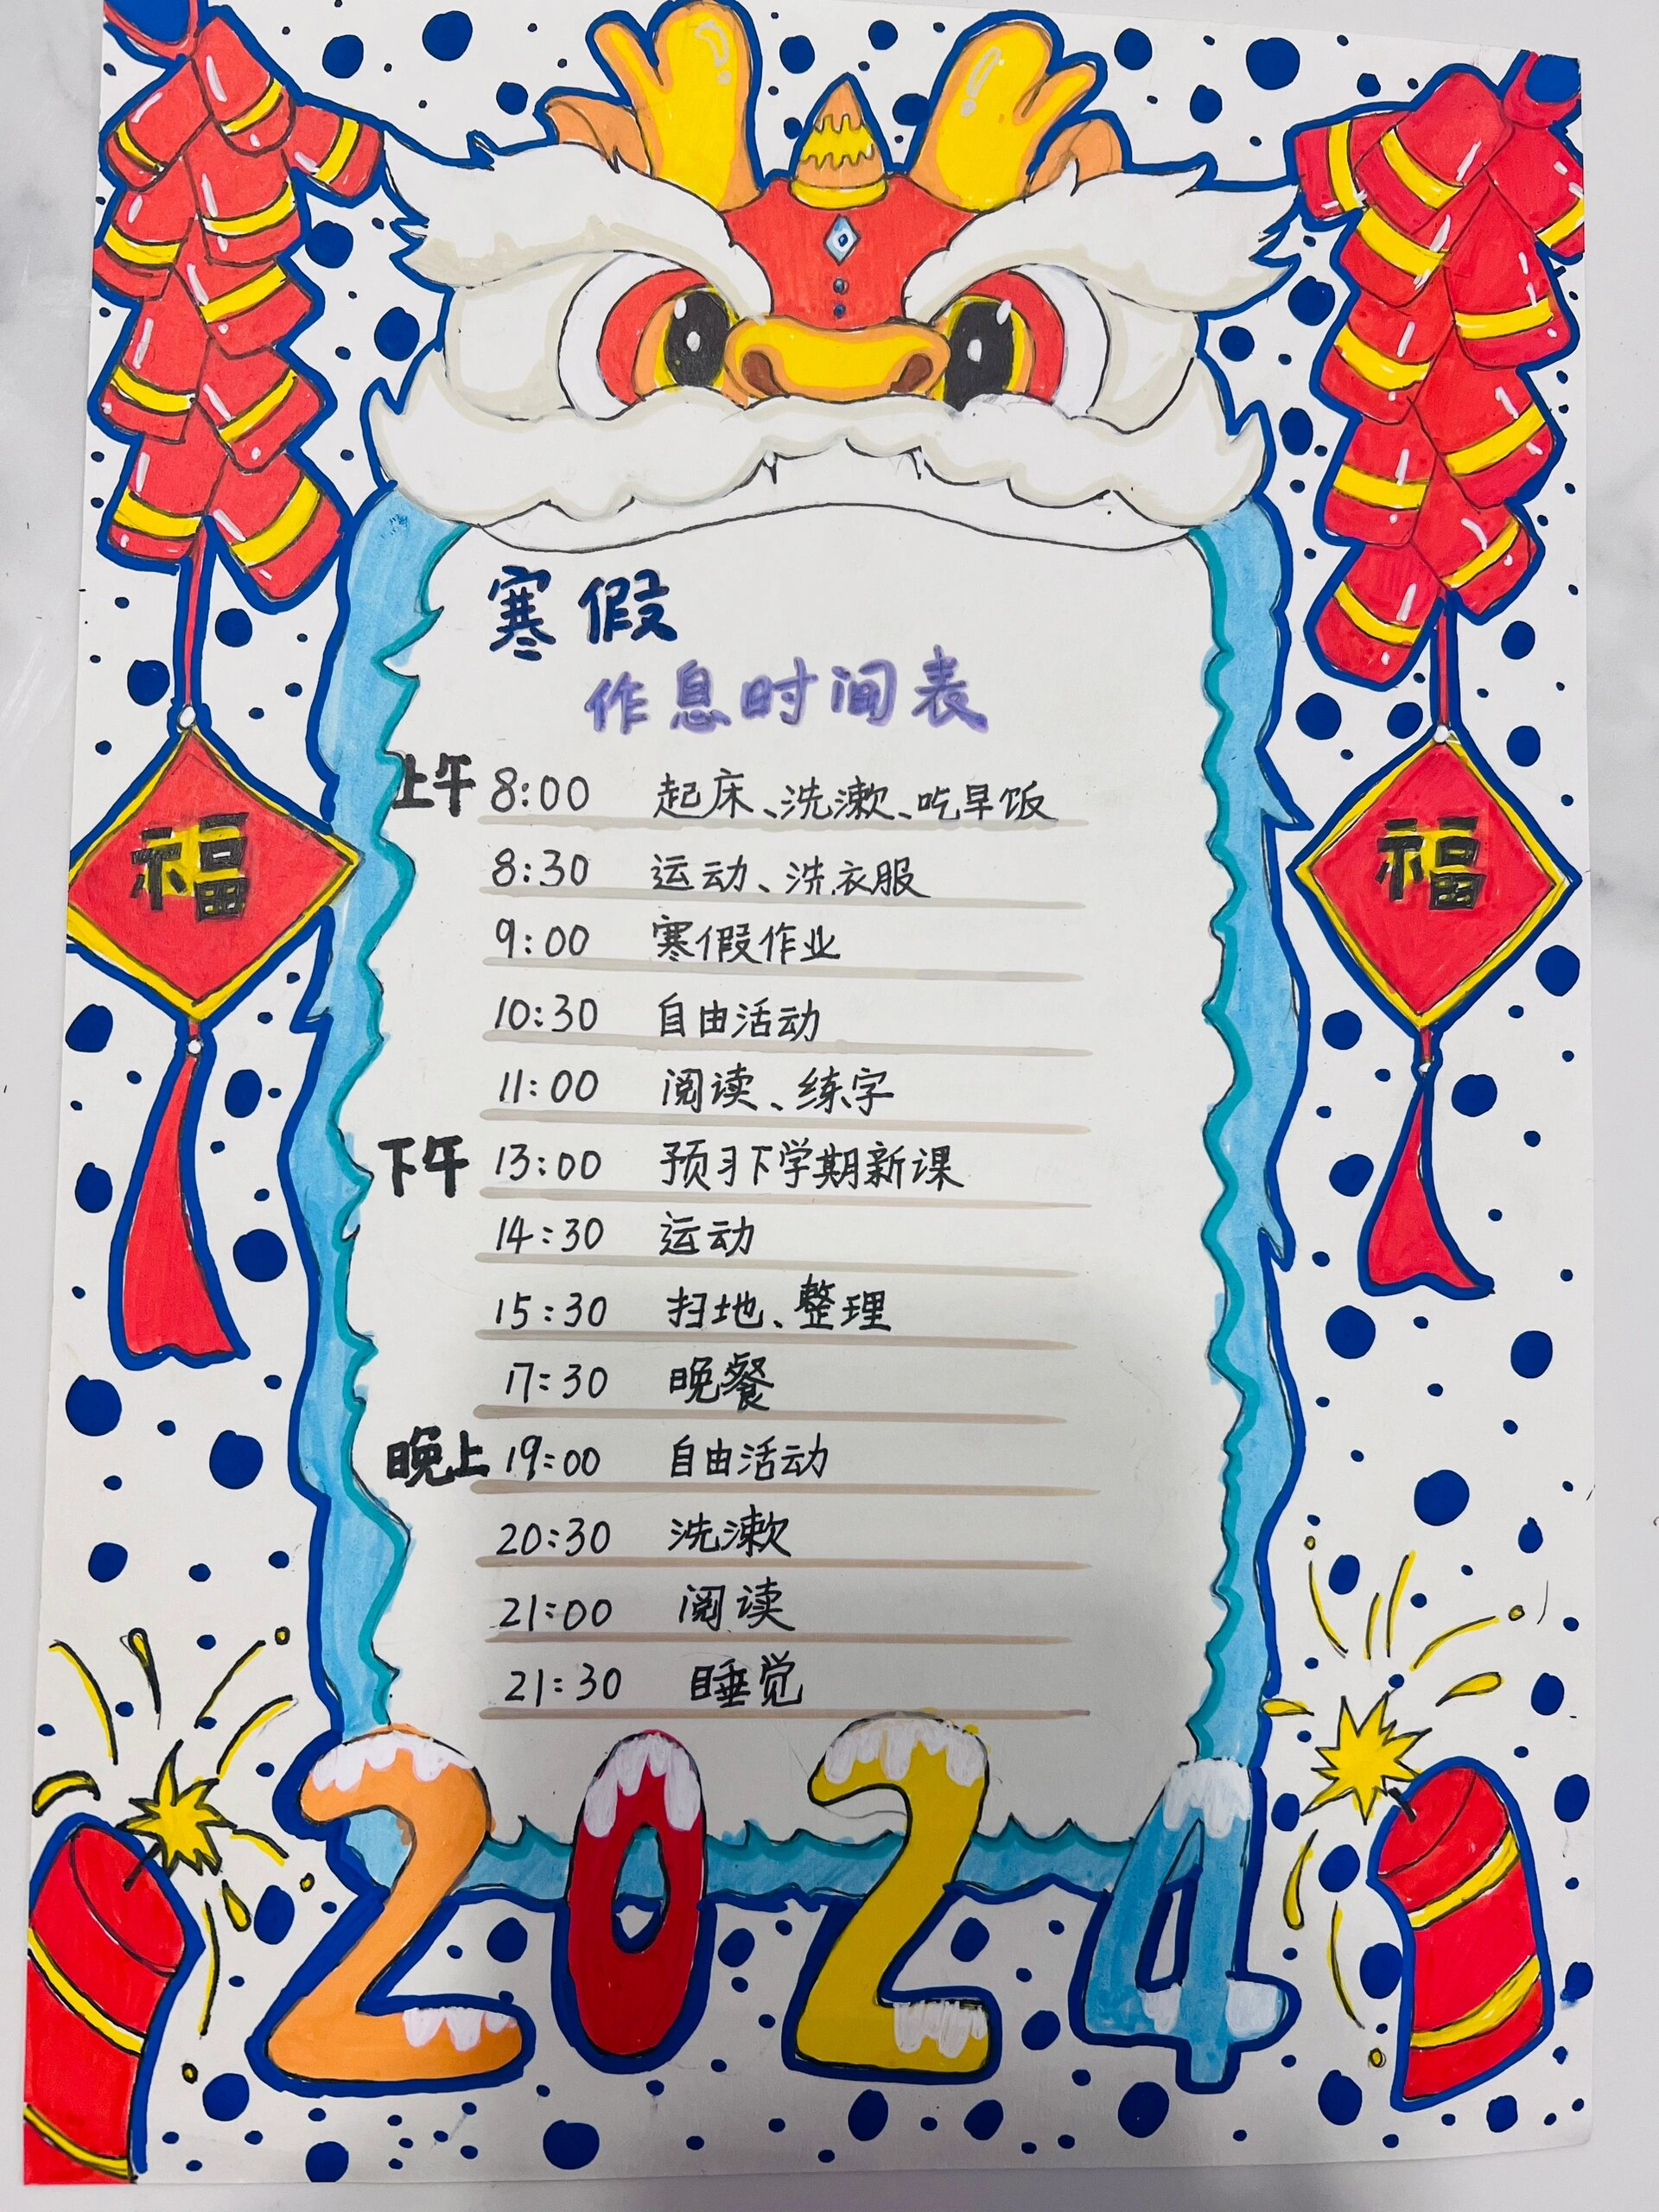 寒假
作息时间表
上午 8:00 起床、洗漱、吃早饭
8:30 运动、洗衣服
9:00 寒假作业
10:30 自由活动
11:00 阅读、练字
下午 13:00 预习下学期新课
14:30 运动
15:30 扫地、整理
17:30 晚餐
晚上 19:00 自由活动
20:30 洗漱
21:00 阅读
21:30 睡觉
福
福
2024